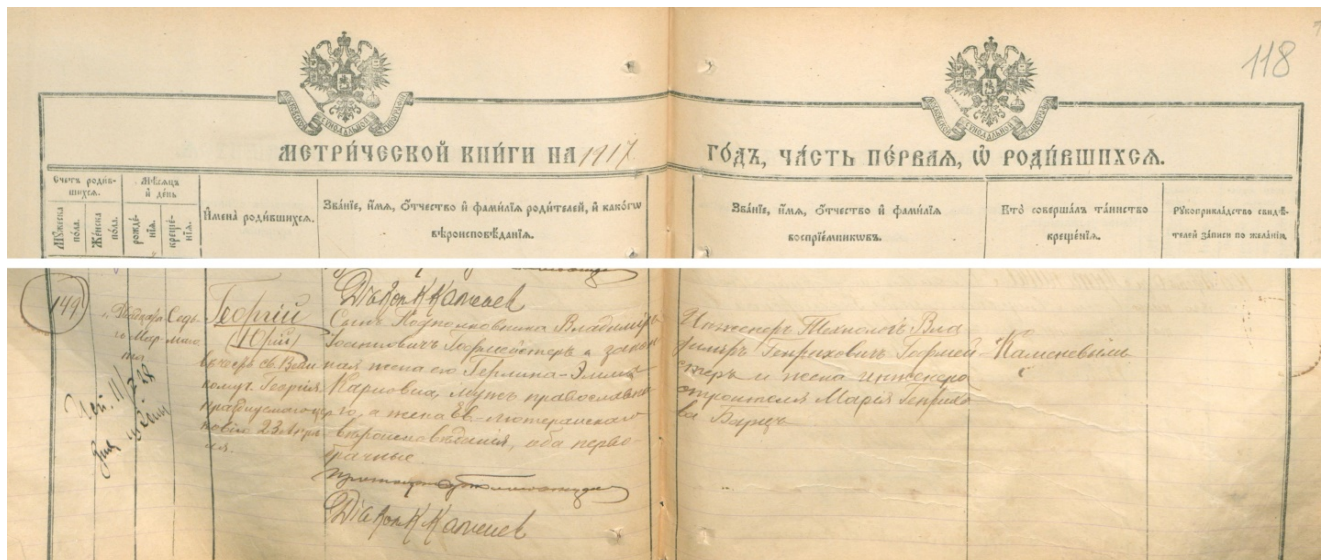 118
МЕТРИЧЕСКОЙ КНИГИ НА 1917 ГОДЪ, ЧАСТЬ ПЕРВАЯ, Ѿ РОДИВШИХСЯ.
Счетъ родив-
шихся.
Мѣсяцъ
и день
Мужеска
пола.
Женска
пола.
рожде-
нія.
креще-
нія.
Имена родившихся.
Званіе, имя, отчество и фамилія родителей, и какогѡ
вѣроисповѣданія.
Званіе, имя, отчество и фамилія
воспріемниковъ.
Кто совершалъ таинство
крещенія.
Рукоприкладство свидѣ-
телей записи по желанію
Діакон К Каменев
149
Георгій
(Юрій)
въ честь св. Вели
кому. Георгія
празднуемаго цер
ковію 23 Апрѣ
ля.
Сынъ Подполковника Владиміръ
Георгмейстеръ и закон
ная жена его Герлина-Эмилія
Карловна, мужъ православна
го, а жена Ев-лютеранскаго
вѣроисповѣданія, оба перво-
брачные.
Діакон К Каменев
Инженеръ Технологъ Вла
диміръ Генриховичъ Георгмей-
стеръ и жена инженера
строителя Марія Генрихо
ва
Каменевымъ